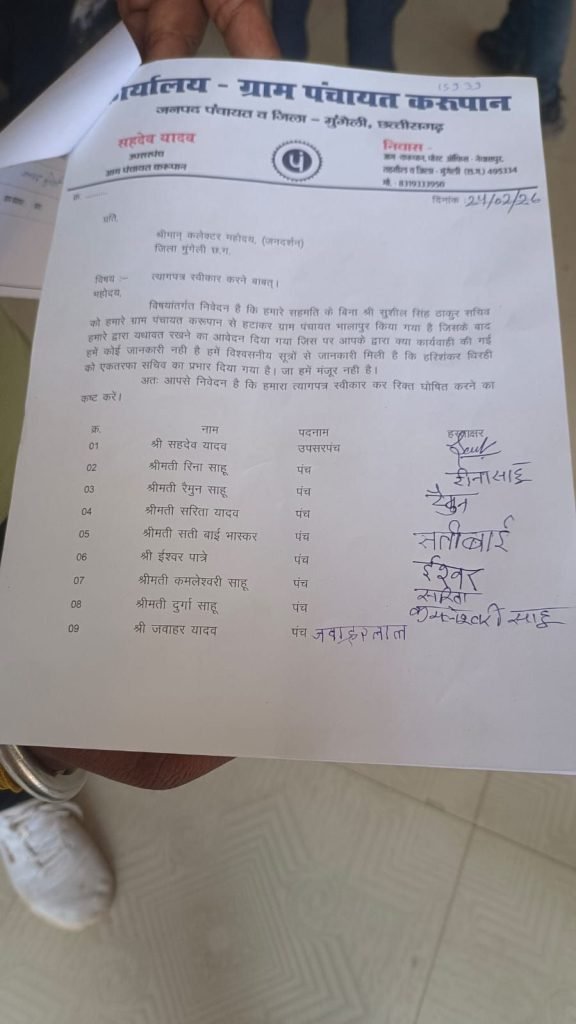 15933
कार्यालय - ग्राम पंचायत करूपान
जनपद पंचायत व जिला - मुंगेली, छत्तीसगढ़
सहदेव यादव
उपसरपंच
ग्राम पंचायत करूपान
निवास -
तहसील व जिला - मुंगेली (छ.ग.) 495334
मो. - 8319333950
क्र. ..........
दिनांक : 24/02/26
प्रति,
श्रीमान् कलेक्टर महोदय, (जनदर्शन)
जिला मुंगेली छ.ग.
विषय :– त्यागपत्र स्वीकार करने बाबत्।
महोदय,
विषयांतर्गत निवेदन है कि हमारे सहमति के बिना श्री सुशील सिंह ठाकुर सचिव
को हमारे ग्राम पंचायत करूपान से हटाकर ग्राम पंचायत भालापुर किया गया है जिसके बाद
हमारे द्वारा यथावत रखने का आवेदन दिया गया जिस पर आपके द्वारा क्या कार्यवाही की गई
हमें कोई जानकारी नही है हमें विश्वसनीय सूत्रों से जानकारी मिली है कि हरिशंकर विरही
को एकतरफा सचिव का प्रभार दिया गया है। जा हमें मंजूर नही है।
अतः आपसे निवेदन है कि हमारा त्यागपत्र स्वीकार कर रिक्त घोषित करने का
कष्ट करें।
क्र. नाम पदनाम हस्ताक्षर
01 श्री सहदेव यादव उपसरपंच
02 श्रीमती रिना साहू पंच रीनासाहू
03 श्रीमती रैमुन साहू पंच रैमुन
04 श्रीमती सरिता यादव पंच
05 श्रीमती सती बाई भास्कर पंच सतीबाई
06 श्री ईश्वर पात्रे पंच ईश्वर
07 श्रीमती कमलेश्वरी साहू पंच सरिता
08 श्रीमती दुर्गा साहू पंच कमलेश्वरी साहू
09 श्री जवाहर यादव पंच जवाहरलाल